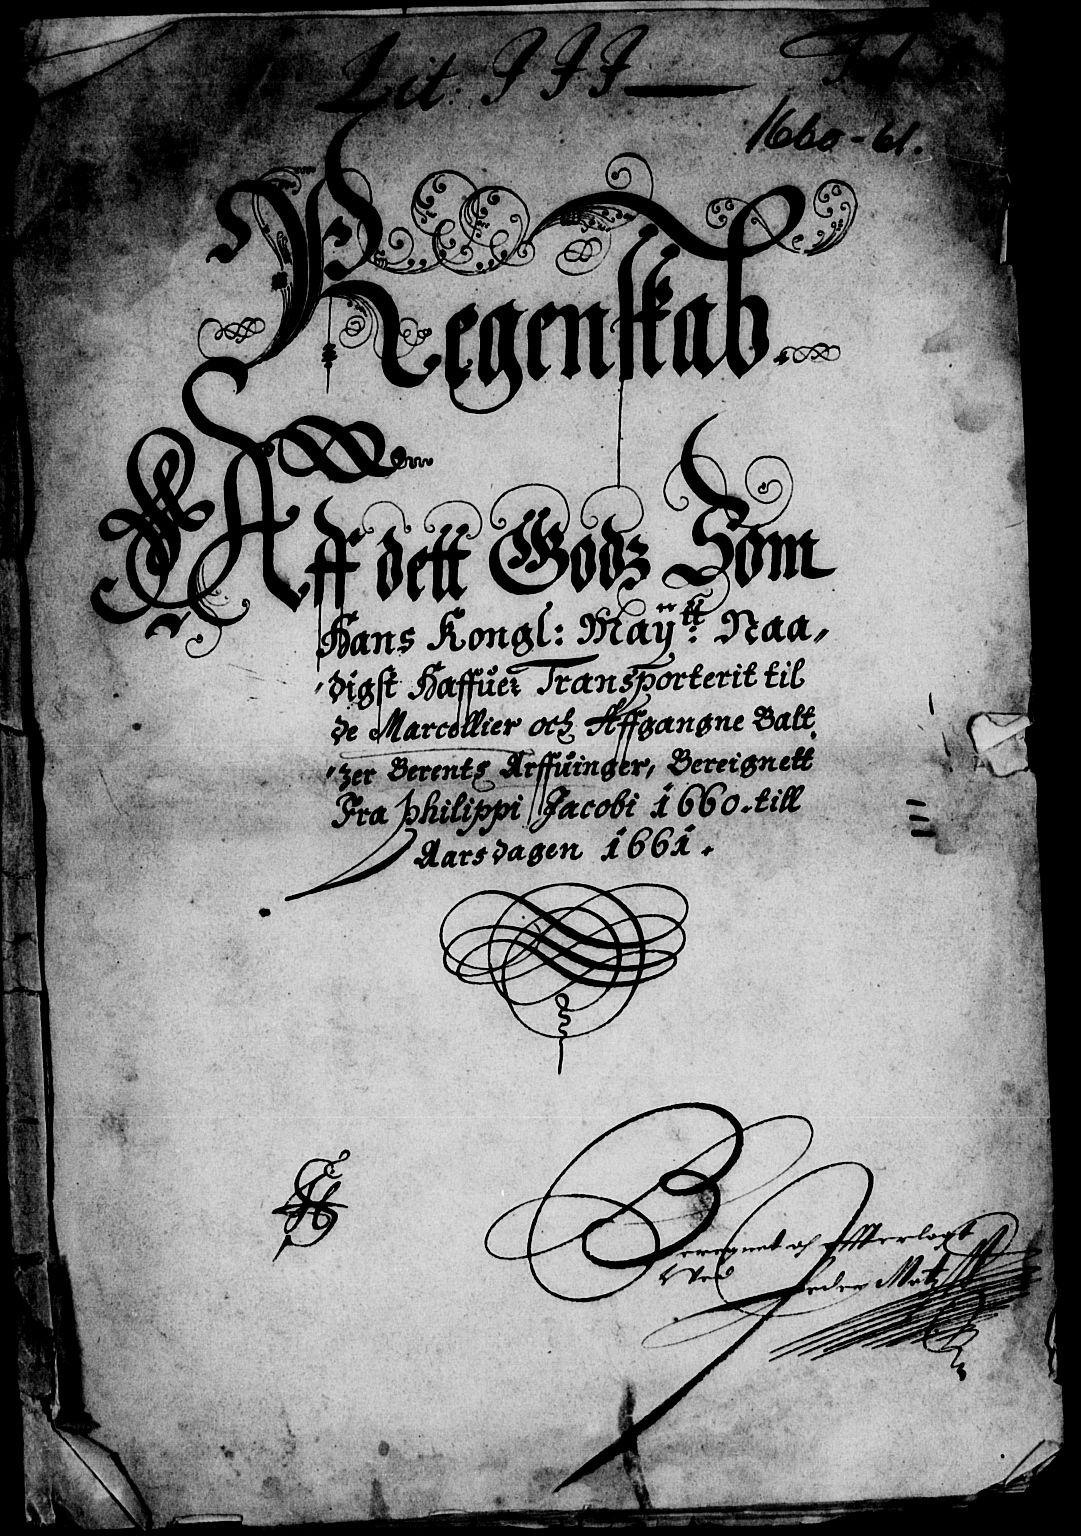 Lit: JJJ
1660-61.
Regenskab.
Aff dett Godz Som
Hans Kongl: Maÿtt: Naa,
,digst Haffuer Transporterit til
de Marcellier och Affgangne Balt,
,zer Berents Arffuinger, Bereignett
Fra Philippi Jacobi 1660. till
Aarsdagen 1661.
Beregnet och Effterlagt
Ved
Peder